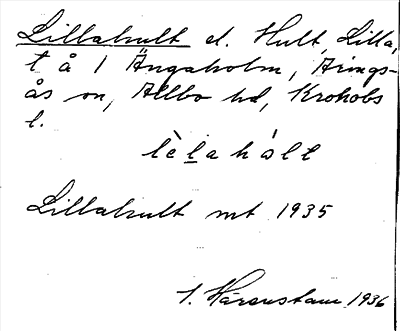 Lillahult el. Hult, Lilla,
t å 1 Ängaholm, Arings-
ås sn, Allbo hd, Krobobs
l.
lèlahàll
Lillahult mt 1935
1936